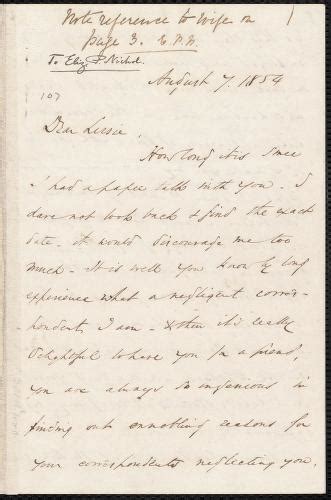 Note reference to Wife on
page 3. E.P.N.
To Eliz. P. Nichol.
August 7. 1854
107
Dear Lizzie,
How long it is since
I had a paper talk with you. I
dare not look back & find the exact
date. It would discourage me too
much - It is well you know by long
experience what a negligent corres-
pondent I am - & then it is really
delightful to have you for a friend,
you are always so ingenious in
finding out ennobling reasons for
your correspondents neglecting you.